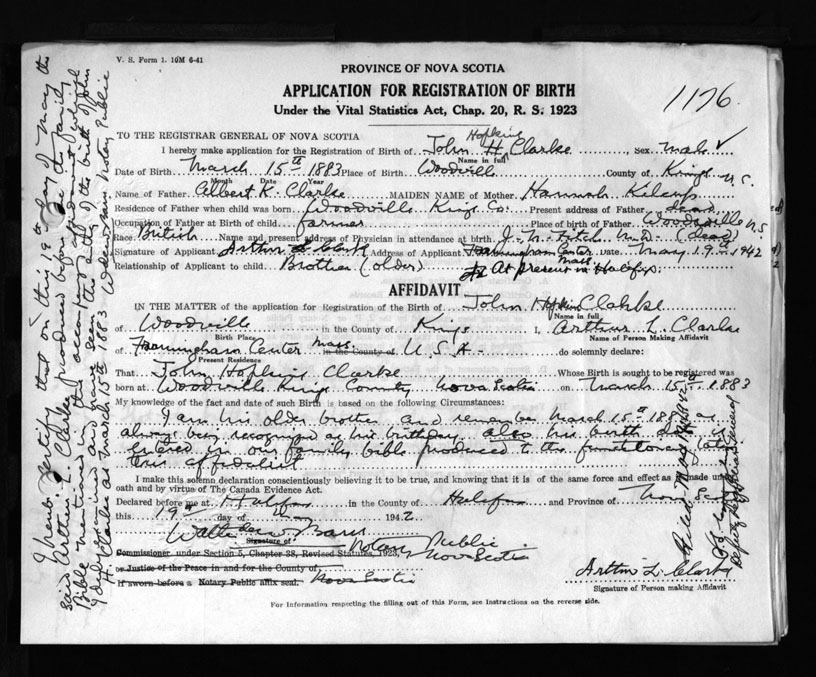 V. S. Form 1. 10M 6-41
PROVINCE OF NOVA SCOTIA
APPLICATION FOR REGISTRATION OF BIRTH
Under the Vital Statistics Act, Chap. 20, R. S. 1923
1176
TO THE REGISTRAR GENERAL OF NOVA SCOTIA
Hopkins
I hereby make application for the Registration of Birth of John H. Clarke, Sex male ✓
Name in full
Date of Birth March 15th 1883 Place of Birth Woodville County of Kings N.S.
Month Date Year
Name of Father Albert K. Clarke MAIDEN NAME of Mother Hannah
Residence of Father when child was born Woodville Kings Co. Present address of Father dead
Occupation of Father at Birth of child farmer Place of birth of Father Woodville N.S.
Race British Name and present address of Physician in attendance at birth J. N. Fitch M.D. (dead)
Signature of Applicant Arthur Clark Address of Applicant Framingham Center Mass. Date May 19 1942
Relationship of Applicant to Child Brother (older) At present in Halifax.
AFFIDAVIT
IN THE MATTER of the application for Registration of the Birth of John Hopkins Clarke
Name in full
of Woodville in the County of Kings I, Arthur L. Clarke
Birth Place Name of Person Making Affidavit
of Framingham Center Mass. in the County of U.S.A. do solemnly declare:
Present Residence
That John Hopkins Clarke Whose Birth is sought to be registered was
born at Woodville Kings County Nova Scotia on March 15th 1883
My knowledge of the fact and date of such Birth is based on the following Circumstances:
I am his older brother and remember March 15th 1883 as
always been recognized as his birthday also his birth date is
entered in our family bible produced to the
this affidavit
I make this solemn declaration conscientiously believing it to be true, and knowing that it is of the same force and effect as if made under
oath and by virtue of The Canada Evidence Act.
Declared before me at Halifax in the County of Halifax and Province of Nova Scotia
this 19th day of May 1942
Signature of Notary Public
Commissioner under Section 5, Chapter 38, Revised Statutes, 1923 Nova Scotia
or Justice of the Peace in and for the County of
If sworn before a Notary Public affix seal. Nova Scotia
Arthur L. Clarke
Signature of Person making Affidavit
For Information respecting the filling out of this Form, see Instructions on the reverse side.
I hereby certify that on this 19th day of May the
said Arthur L. Clarke produced before me the family
Bible mentioned in the accompanying affidavit which
I duly examined and have seen the entry of the birth of John
H. Clarke as March 15th 1883 Notary Public
Filed May 19 1942
Deputy Registrar General